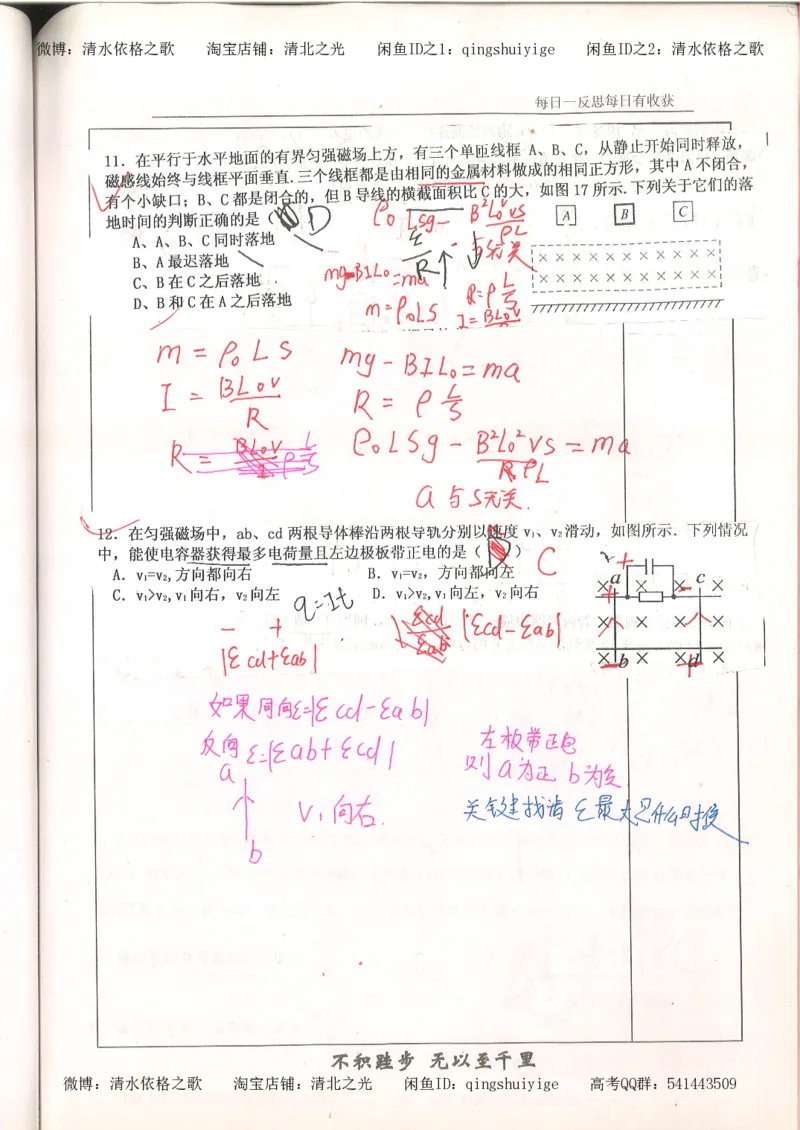 微博：清水依格之歌 淘宝店铺：清北之光 闲鱼ID之1：qingshuiyige 闲鱼ID之2：清水依格之歌
每日一反思每日有收获
11．在平行于水平地面的有界匀强磁场上方，有三个单匝线框 A、B、C，从静止开始同时释放，
磁感线始终与线框平面垂直.三个线框都是由相同的金属材料做成的相同正方形，其中A不闭合，
有个小缺口；B、C都是闭合的，但B导线的横截面积比C的大，如图17所示.下列关于它们的落
地时间的判断正确的是（ D
A、A、B、C同时落地
B、A最迟落地
C、B在C之后落地
D、B和C在A之后落地
A B C
ρ₀LSg- B²L₀²vS/ρL
与S无关
ε/R
mg-BIL₀=ma
m=ρ₀LS
R=ρL/S
I=BL₀v
m=ρ₀LS
mg-BIL₀=ma
I=BL₀v/R
R=ρL/S
R=ρL/S
ρ₀LSg-B²L₀²vS/ρL=ma
a与S无关.
12．在匀强磁场中，ab、cd两根导体棒沿两根导轨分别以速度 v₁、v₂滑动，如图所示．下列情况
中，能使电容器获得最多电荷量且左边极板带正电的是（ ） C
A．v₁=v₂,方向都向右 B．v₁=v₂，方向都向左
C．v₁>v₂,v₁向右，v₂向左 D．v₁>v₂,v₁向左，v₂向右
a c
b d
q=It
- +
|εcd+εab|
|εcd-εab|
如果同向ε=|εcd-εab|
反向ε=|εab+εcd|
左板带正电
则a为正b为负
a
v₁向右.
b
关键找清ε最大是什么时候
不积跬步 无以至千里
微博：清水依格之歌 淘宝店铺：清北之光 闲鱼ID：qingshuiyige 高考QQ群：541443509